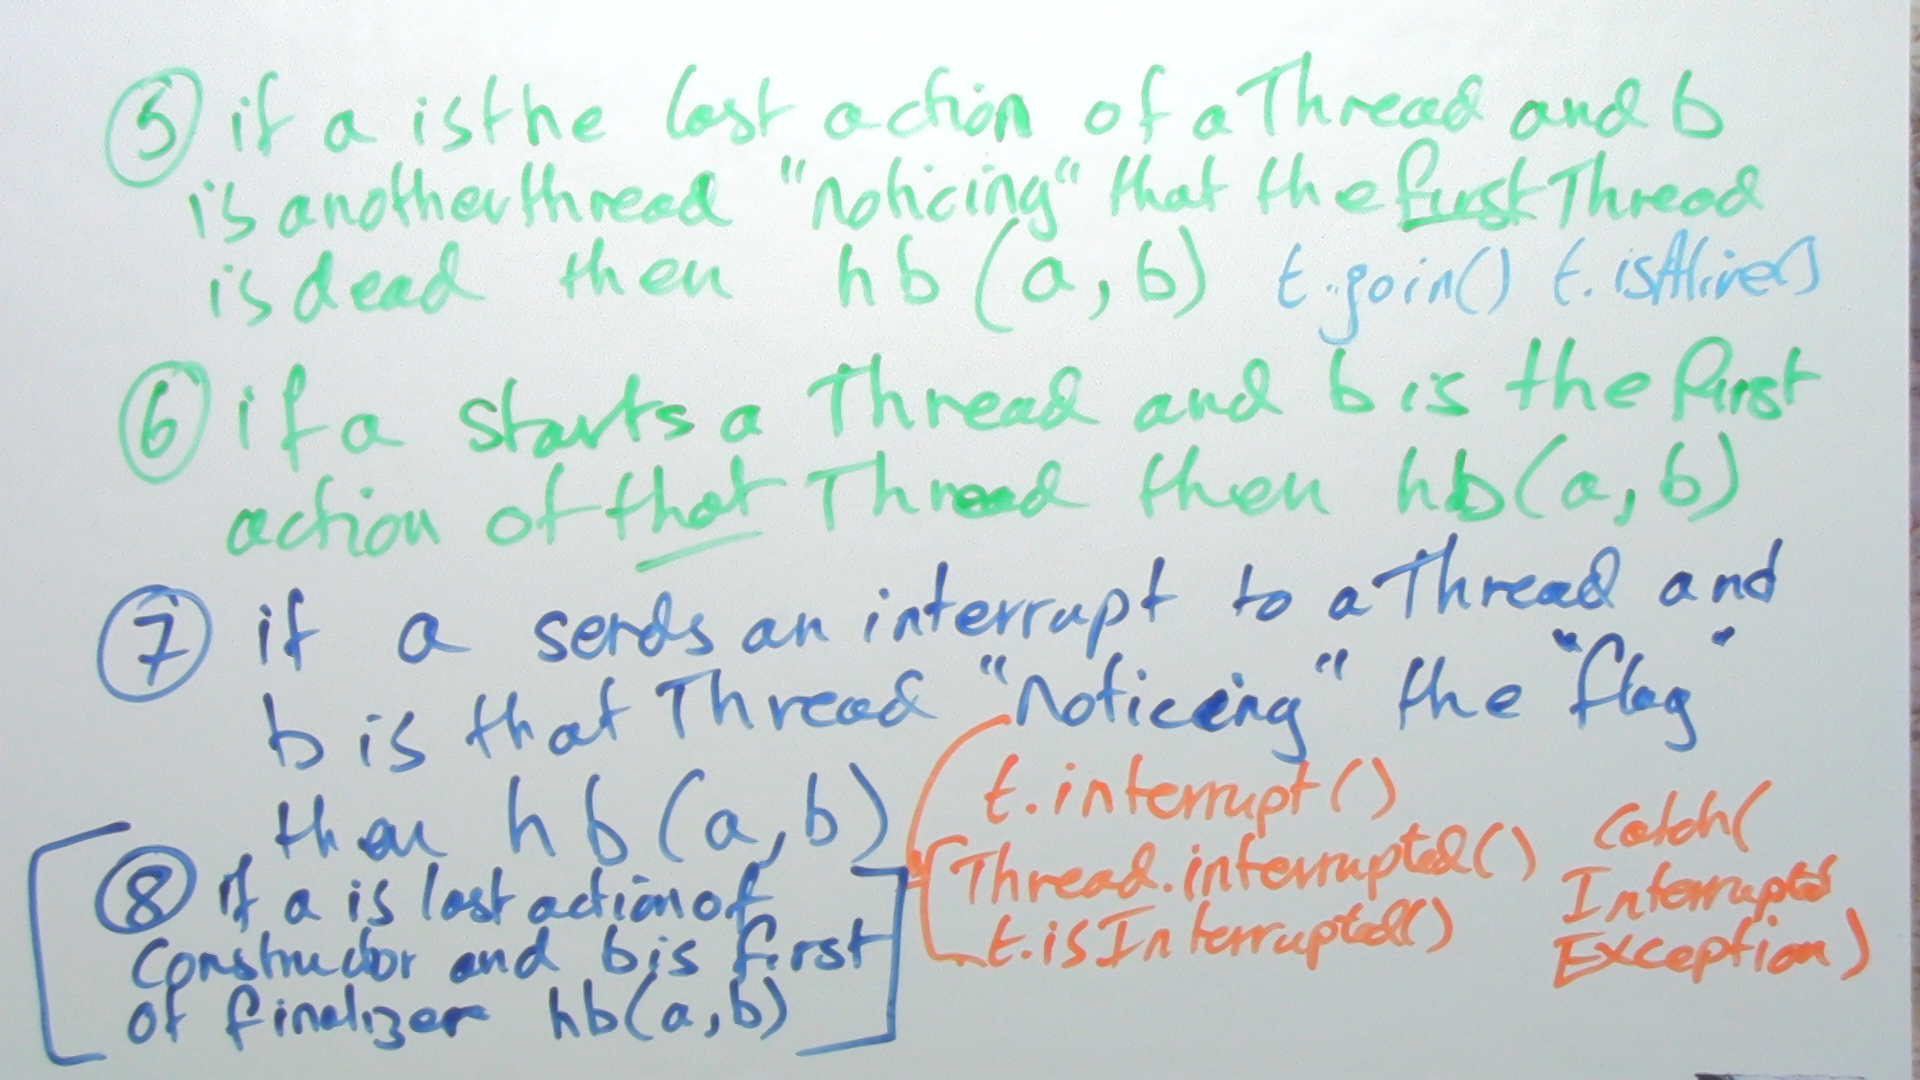 ⑤ if a is the last action of a Thread and b
is another thread "noticing" that the first Thread
is dead then hb(a,b) t.join() t.isAlive()
⑥ if a starts a Thread and b is the first
action of that Thread then hb(a,b)
⑦ if a sends an interrupt to a Thread and
b is that Thread "noticing" the "flag"
then hb(a,b)
t.interrupt()
Thread.interrupted()
t.isInterrupted()
catch(
Interrupted
Exception)
⑧ if a is last action of
constructor and b is first
of finalizer hb(a,b)